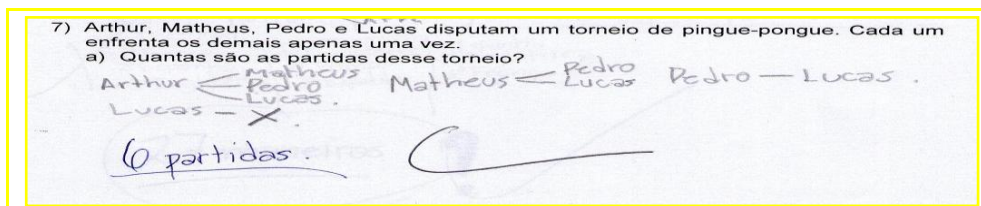 7) Arthur, Matheus, Pedro e Lucas disputam um torneio de pingue-pongue. Cada um
enfrenta os demais apenas uma vez.
a) Quantas são as partidas desse torneio?
Arthur Matheus
Pedro
Lucas.
Matheus Pedro
Lucas
Pedro — Lucas.
Lucas — X.
6 partidas.